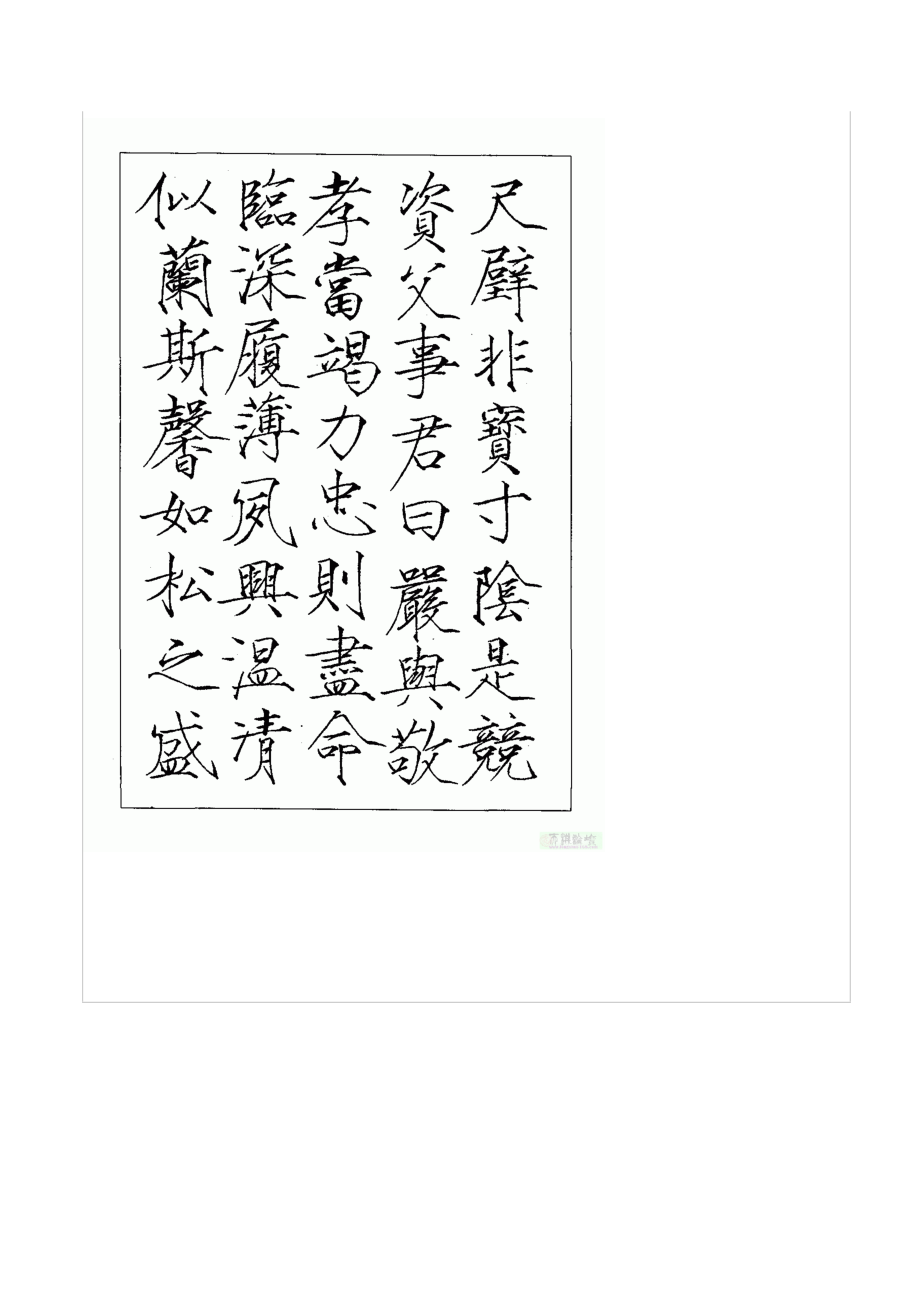 尺璧非寶寸陰是競
資父事君曰嚴與敬
孝當竭力忠則盡命
臨深履薄夙興温凊
似蘭斯馨如松之盛